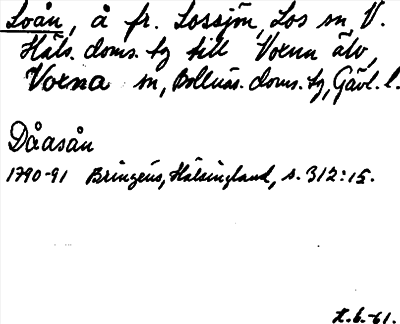 Loån, å fr. Lossjön, Los sn, V.
Häls. doms. tg till Voxna älv,
Voxna sn, Bollnäs. doms. tg, Gävl. l.
Dåasån
1790-91 Bringéus, Hälsingland, s. 312:15.